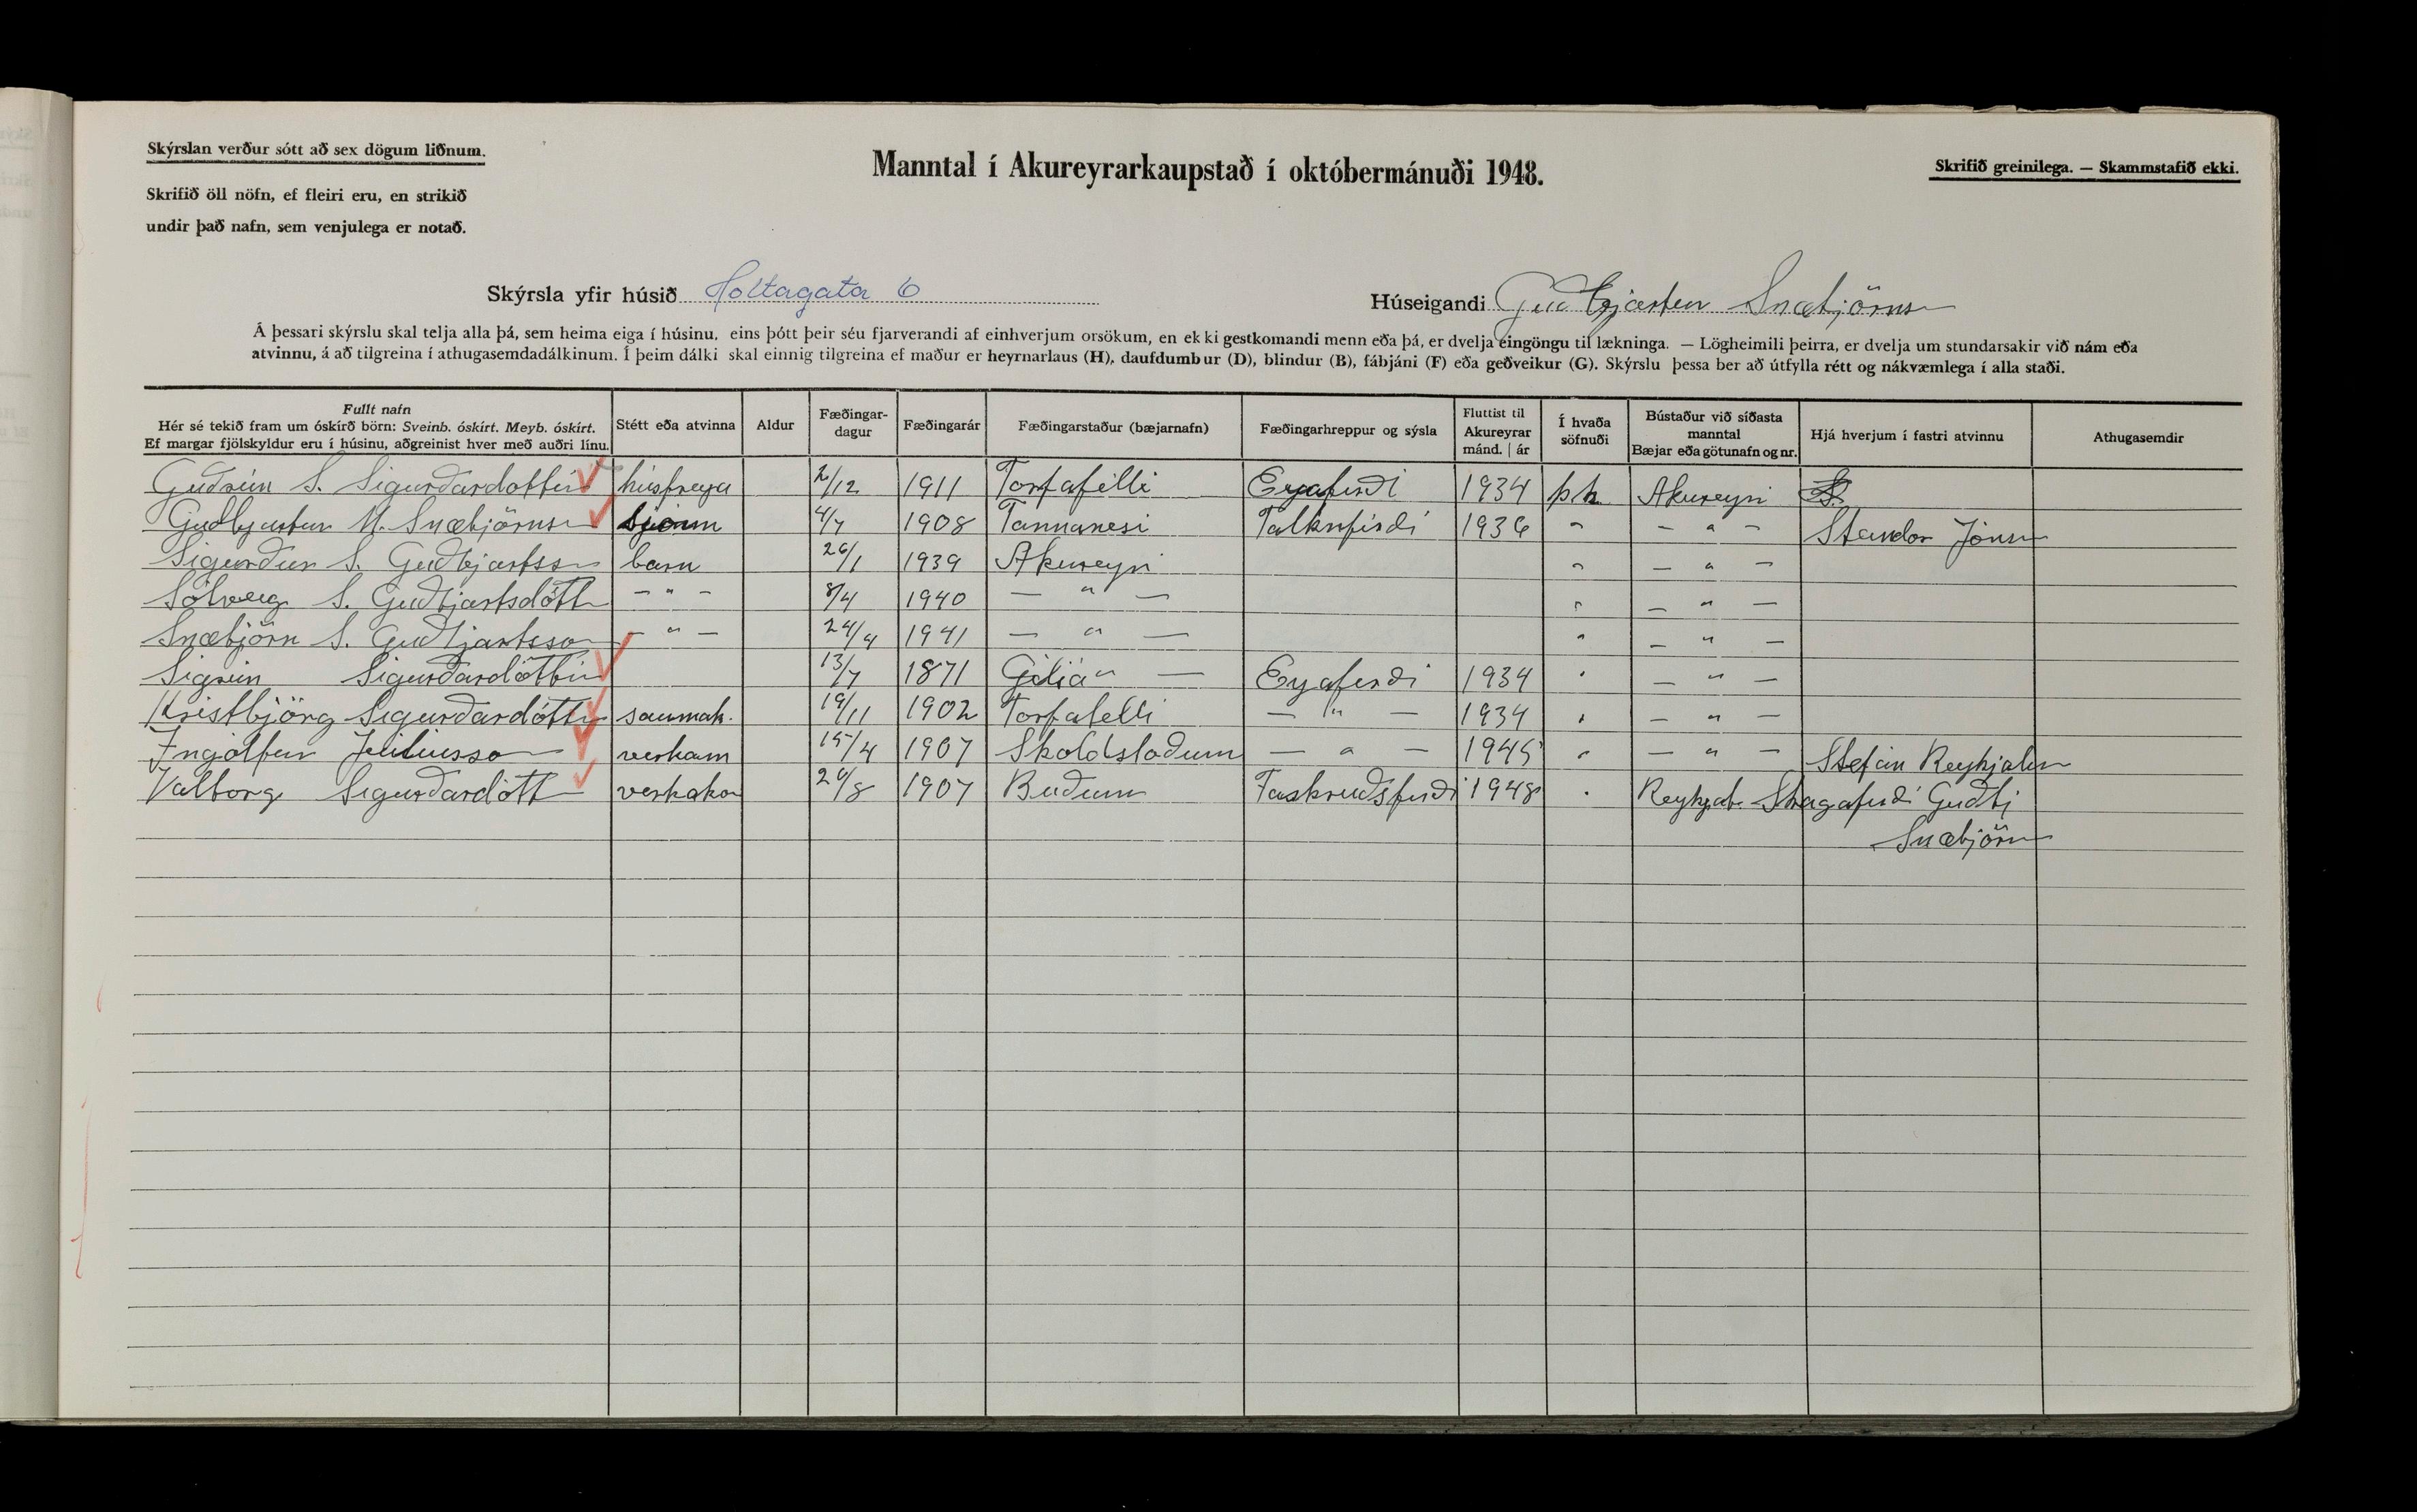 Skýrslan verður sótt að sex dögum liðnum.
Skrifið öll nöfn, ef fleiri eru, en strikið
undir það nafn, sem venjulega er notað.
Manntal í Akureyrarkaupstað í októbermánuði 1948.
Skrifið greinilega. — Skammstafið ekki.
Skýrsla yfir húsið Holtagata 6
Húseigandi Guðbjartur Snæbjörns
Á þessari skýrslu skal telja alla þá, sem heima eiga í húsinu, eins þótt þeir séu fjarverandi af einhverjum orsökum, en ekki gestkomandi menn eða þá, er dvelja eingöngu til lækninga. — Lögheimili þeirra, er dvelja um stundarsakir við nám eða
atvinnu, á að tilgreina í athugasemdadálkinum. Í þeim dálki skal einnig tilgreina ef maður er heyrnarlaus (H), daufdumbur (D), blindur (B), fábjáni (F) eða geðveikur (G). Skýrslu þessa ber að útfylla rétt og nákvæmlega í alla staði.
Fullt nafn
Hér sé tekið fram um óskírð börn: Sveinb. óskírt. Meyb. óskírt.
Ef margar fjölskyldur eru í húsinu, aðgreinist hver með auðri línu.
Stétt eða atvinna
Aldur
Fæðingar-
dagur
Fæðingarár
Fæðingarstaður (bæjarnafn)
Fæðingarhreppur og sýsla
Fluttist til
Akureyrar
mánd. | ár
Í hvaða
söfnuði
Bústaður við síðasta
manntal
Bæjar eða götunafn og nr.
Hjá hverjum í fastri atvinnu
Athugasemdir
Guðrún S. Sigurðardóttir húsfreya 2/12 1911 Torfafelli Eyafirði 1934 þk Akureyri
Guðbjartur M. Snæbjörns sjóm 4/7 1908 Tannanesi Talknfirdi 1936 " — " — Jóns
Sigurður S. Guðbjartss barn 26/1 1939 Akureyri " — " —
Sólveig S. Guðbjartsdótt — " — 8/4 1940 — " — " — " —
Snæbjörn S. Guðbjartsson — " — 24/9 1941 — " — " — " —
Sigrún Sigurðardóttir 13/7 1871 Giljá " — Eyafirði 1934 " — " —
Kristbjörg Sigurðardóttir saumak. 19/11 1902 Torfafelli — " — 1934 " — " —
Ingólfur Júlíusso verkam 15/4 1907 Skoldstodum — " — 1945 " — " — Stefán Reykjalin
Valborg Sigurðardótt verkako 29/8 1907 Buðum Faskruðsfirdi 1948 " Skagafirdi Guðbj
Snæbjörn